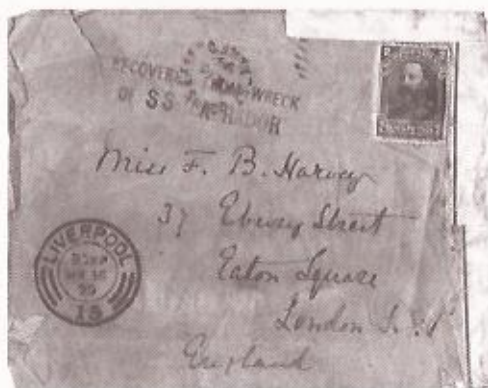 RECOVERED FROM WRECK
OF S.S. LABRADOR
Miss F. B. Harvey
37 Ebury Street
Eaton Square
London S.W.
England
LIVERPOOL
99
18